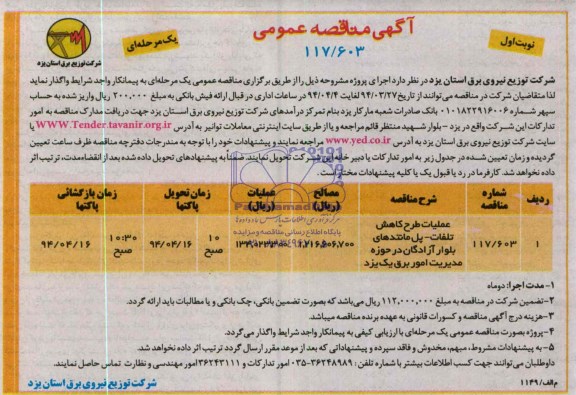 نوبت اول
آگهی مناقصه عمومی
۱۱۷/۶۰۳
یک مرحله‌ای
شرکت توزیع نیروی برق استان یزد
شرکت توزیع نیروی برق استان یزد در نظر دارد اجرای پروژه مشروحه ذیل را از طریق برگزاری مناقصه عمومی یک مرحله‌ای به پیمانکار واجد شرایط واگذار نماید
لذا متقاضیان شرکت در مناقصه می‌توانند از تاریخ ۹۴/۰۳/۲۷ لغایت ۹۴/۰۴/۴ در ساعات اداری در قبال ارائه فیش بانکی به مبلغ ۲۰۰,۰۰۰ ریال واریز شده به حساب
سپهر شماره ۰۱۰۱۸۲۲۹۱۶۰۰۶ بانک صادرات شعبه مارکار یزد بنام تمرکز درآمدهای شرکت توزیع نیروی برق استان یزد جهت دریافت مدارک مناقصه به امور
تدارکات این شرکت واقع در یزد - بلوار شهید منتظر قائم مراجعه و یا از طریق سایت اینترنتی معاملات توانیر به آدرس WWW.Tender.tavanir.org.ir یا
سایت شرکت توزیع برق استان یزد به آدرس www.yed.co.ir مراجعه نمایند و پیشنهادات خود را با توجه به مندرجات دفترچه مناقصه ظرف ساعت تعیین
گردیده و زمان تعیین شده در جدول زیر به امور تدارکات یا دبیر خانه این شرکت تحویل نمایند. ضمناً به پیشنهادهای تحویل داده شده بعد از انقضا مدت، ترتیب اثر
داده نخواهد شد. کارفرما در رد یا قبول یک یا کلیه پیشنهادات مختار است.
ردیف شماره مناقصه شرح مناقصه مصالح (ریال) عملیات (ریال) زمان تحویل پاکتها زمان بازگشائی پاکتها
۱ ۱۱۷/۶۰۳ عملیات طرح کاهش تلفات - پل مانندهای بلوار آزادگان در حوزه مدیریت امور برق یک یزد ۱۰ صبح ۹۴/۰۴/۱۶ ۱۰:۳۰ صبح ۹۴/۰۴/۱۶
پایگاه اطلاع رسانی مناقصه و مزایده
۱- مدت اجرا: دو ماه
۲- تضمین شرکت در مناقصه به مبلغ ۱۱۲,۰۰۰,۰۰۰ ریال می‌باشد که بصورت تضمین بانکی، چک بانکی و یا مطالبات باید ارائه گردد.
۳- هزینه درج آگهی مناقصه و کسورات قانونی به عهده برنده مناقصه میباشد.
۴- پروژه بصورت مناقصه عمومی یک مرحله‌ای با ارزیابی کیفی به پیمانکار واجد شرایط واگذار می‌گردد.
۵- به پیشنهادات مشروط، مبهم، مخدوش و فاقد سپرده و پیشنهاداتی که بعد از موعد مقرر ارسال گردد ترتیب اثر داده نخواهد شد.
داوطلبان می‌توانند جهت کسب اطلاعات بیشتر با شماره تلفن: ۳۶۲۴۸۹۸۹-۰۳۵ امور تدارکات و ۳۶۲۴۳۱۱۱ امور مهندسی و نظارت تماس حاصل نمایند.
شرکت توزیع نیروی برق استان یزد
م الف/ ۱۱۴۹